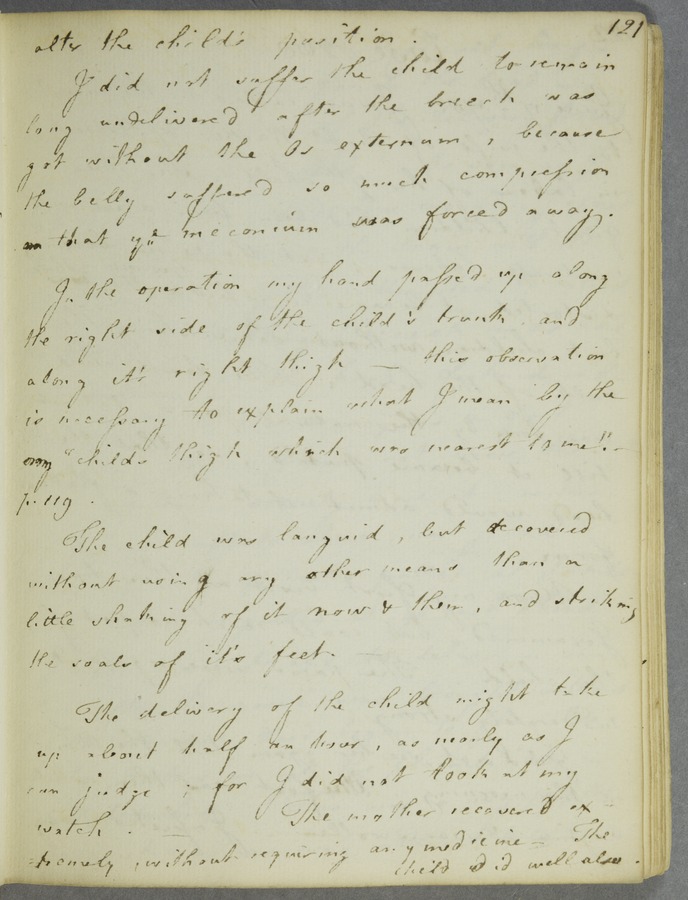 121
alter the child's position.
I did not suffer the child to remain
long undelivered after the breech was
got without the Os externum, because
the belly suffered so much compression
that ye meconium was forced away.
In the operation my hand pass'd up along
the right side of the child's trunk and
along it's right thigh — this observation
is necessary to explain what I mean by the
"childs thigh which was nearest to me".—
p. 119.
The child was languid, but recovered
without using any other means than a
little shaking of it now & then, and striking
the soals of it's feet. —
The delivery of the child might take
up about half an hour, as nearly as I
can judge; for I did not look at my
watch. — The mother recovered ex-
tremely, without requiring any medicine — The
child did well also.